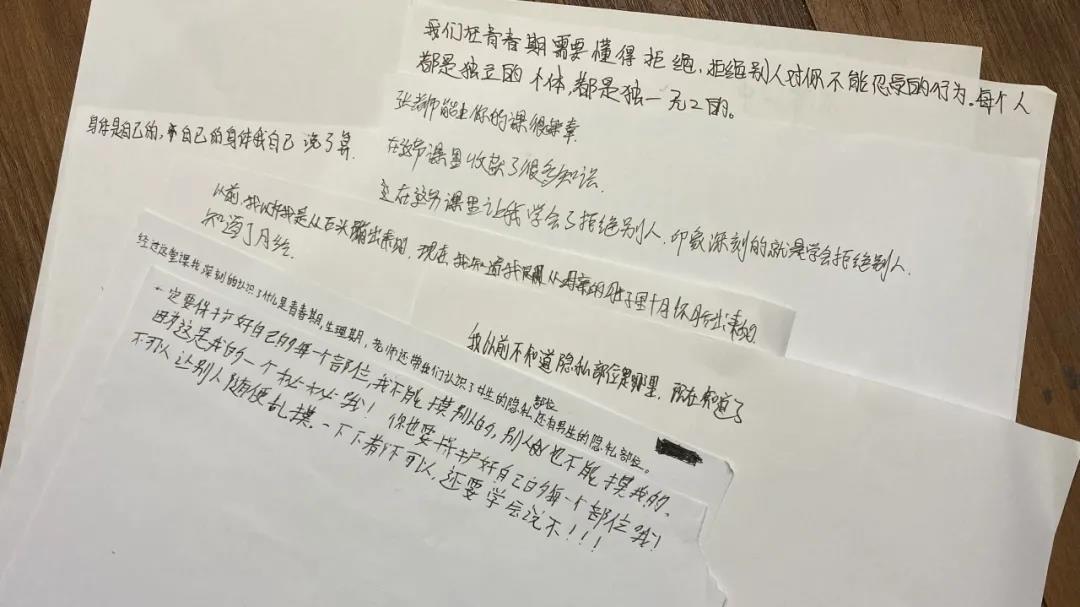 我们在青春期需要懂得拒绝，拒绝别人对你不能忍受的行为。每个人
都是独立的个体，都是独一无二的。
张老师能上你的课很荣幸
在这节课里收获了很多知识
在这节课里让我学会了拒绝别人，印象深刻的就是学会拒绝别人.
身体是自己的，自己的身体我自己说了算.
以前，我以为我是从石头蹦出来的，现在，我知道我是从母亲的肚子里十月怀胎出来的
知道了月经.
我以前不知道隐私部位是哪里，现在知道了
经过这堂课我深刻的认识了什么是青春期，生理期，老师还带我们认识了女生的隐私部位还有男生的隐私部位。
一定要保护好自己的每一个部位，我不能摸别人的，别人也不能摸我的，
因为这是我的一个秘秘哦！你也要保护好自己的每一个部位哦！
不可以让别人随便乱摸，一下下都不可以，还要学会说不！！！